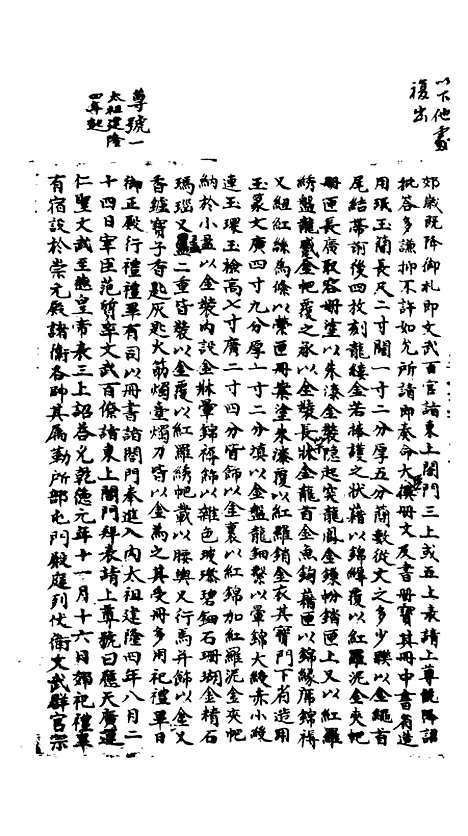 以下他處
複出
尊號一
太祖建隆
四年起
郊祀既降御札即文武百官詣東上閤門三上或五上表請上尊號降詔
批答多謙抑不許如允所請即奏命大臣撰冊文及書冊寶其冊中書省造
用珉玉簡長尺二寸闊一寸二分厚五分簡數從文之多少聯以金繩首
尾結帶前後四枚刻龍縷金若捧護之狀藉以錦縟覆以紅羅泥金夾帊
冊匣長廣取容冊塗以朱漆金裝隱起突龍鳳金鏁帉錔匣上又以紅羅
綉盤龍蹙金帊覆之承以金裝長牀金龍首金魚鉤藉匣以錦緣席錦褥
又紐紅絲為絛以縈匣冊案塗朱漆覆以紅羅銷金衣其寶門下省造用
玉篆文廣四寸九分厚一寸二分填以金盤龍鈕繫以暈錦大綬赤小綬
連玉環玉檢高七寸廣二寸四分皆飾以金裹以紅錦加紅羅泥金夾帊
納於小盝以金裝內設金牀暈錦褥飾以雜色玻瓈碧鈿石珊瑚金精石
瑪瑙又盝二重皆裝以金覆以紅羅綉帊載以腰輿又行馬並飾以金又
香爐寶子香匙灰匙火筯燭臺燭刀皆以金為之其受冊多用祀禮畢日
御正殿行禮禮畢有司以冊寶詣閤門奉進入內太祖建隆四年八月二
十四日宰臣范質率文武百僚詣東上閤門拜表請上尊號曰應天廣運
仁聖文武至德皇帝表三上詔答允乾德元年十一月十六日郊祀禮畢
有宿設於崇元殿諸衛各帥其屬勤所部屯門殿庭列仗衛文武群官宗